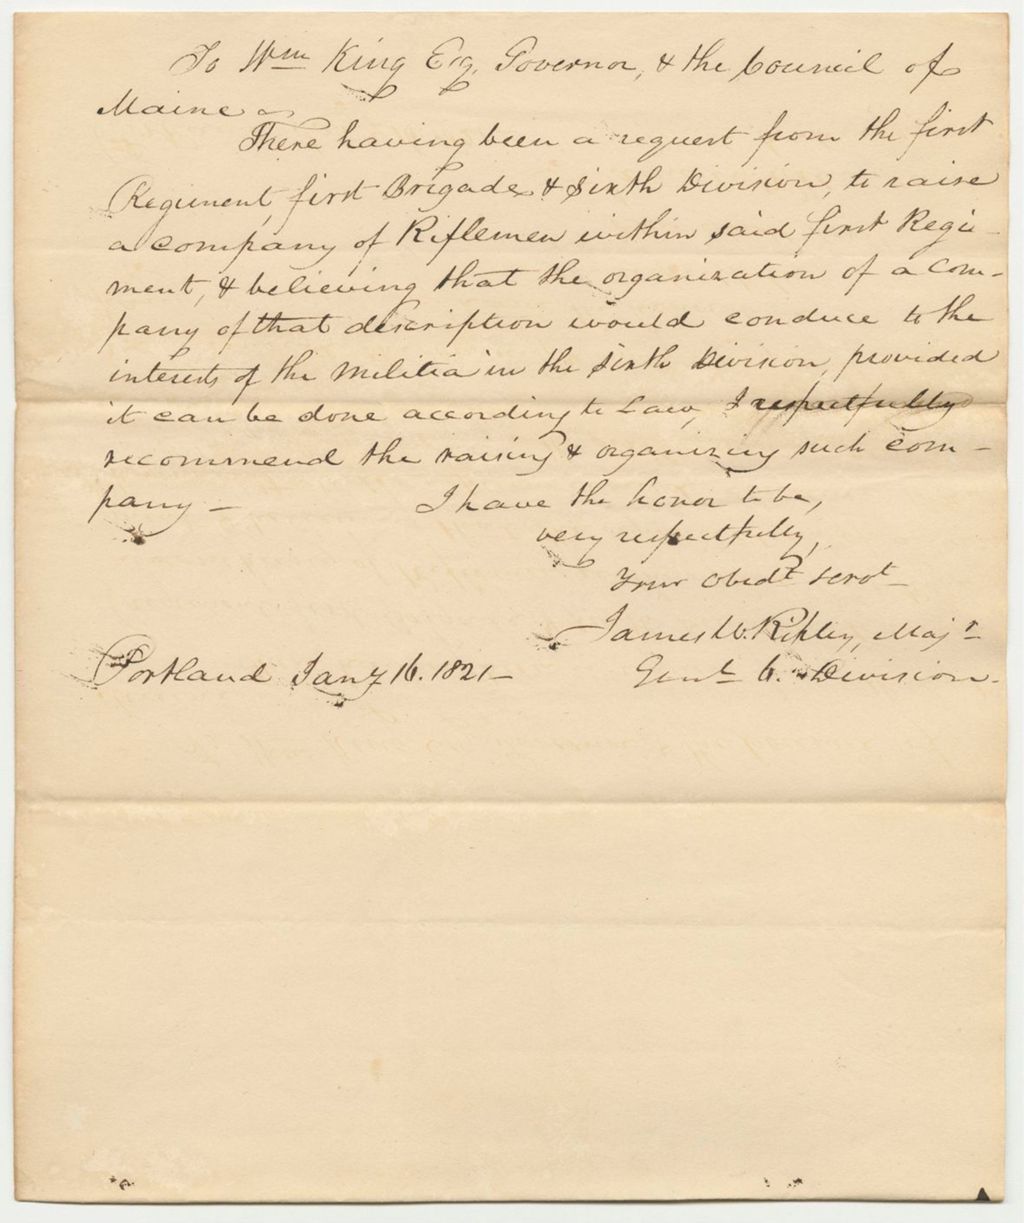 To Wm King Esq. Governor, & the Council of
Maine
There having been a request from the first
Regiment, first Brigade & Sixth Division, to raise
a company of Riflemen within said first Regi-
ment, & believing that the organization of a com-
pany of that description would conduce to the
interests of the Militia in the Sixth Division, provided
it can be done according to Law, I respectfully
recommend the raising & organizing such com-
pany — I have the honor to be,
very respectfully,
Your obedt servt
James W. Ripley, Majr
Portland Jany 16. 1821 — Genl 6. Division.